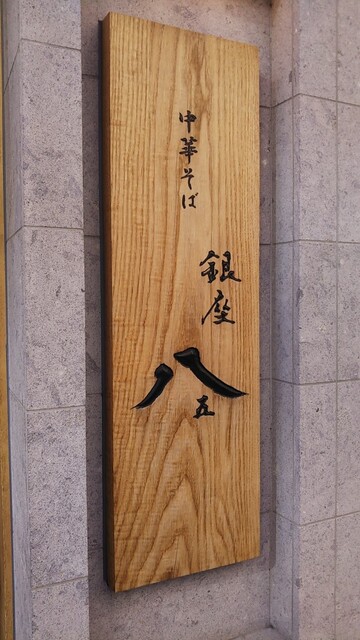 中華そば
銀座
八五